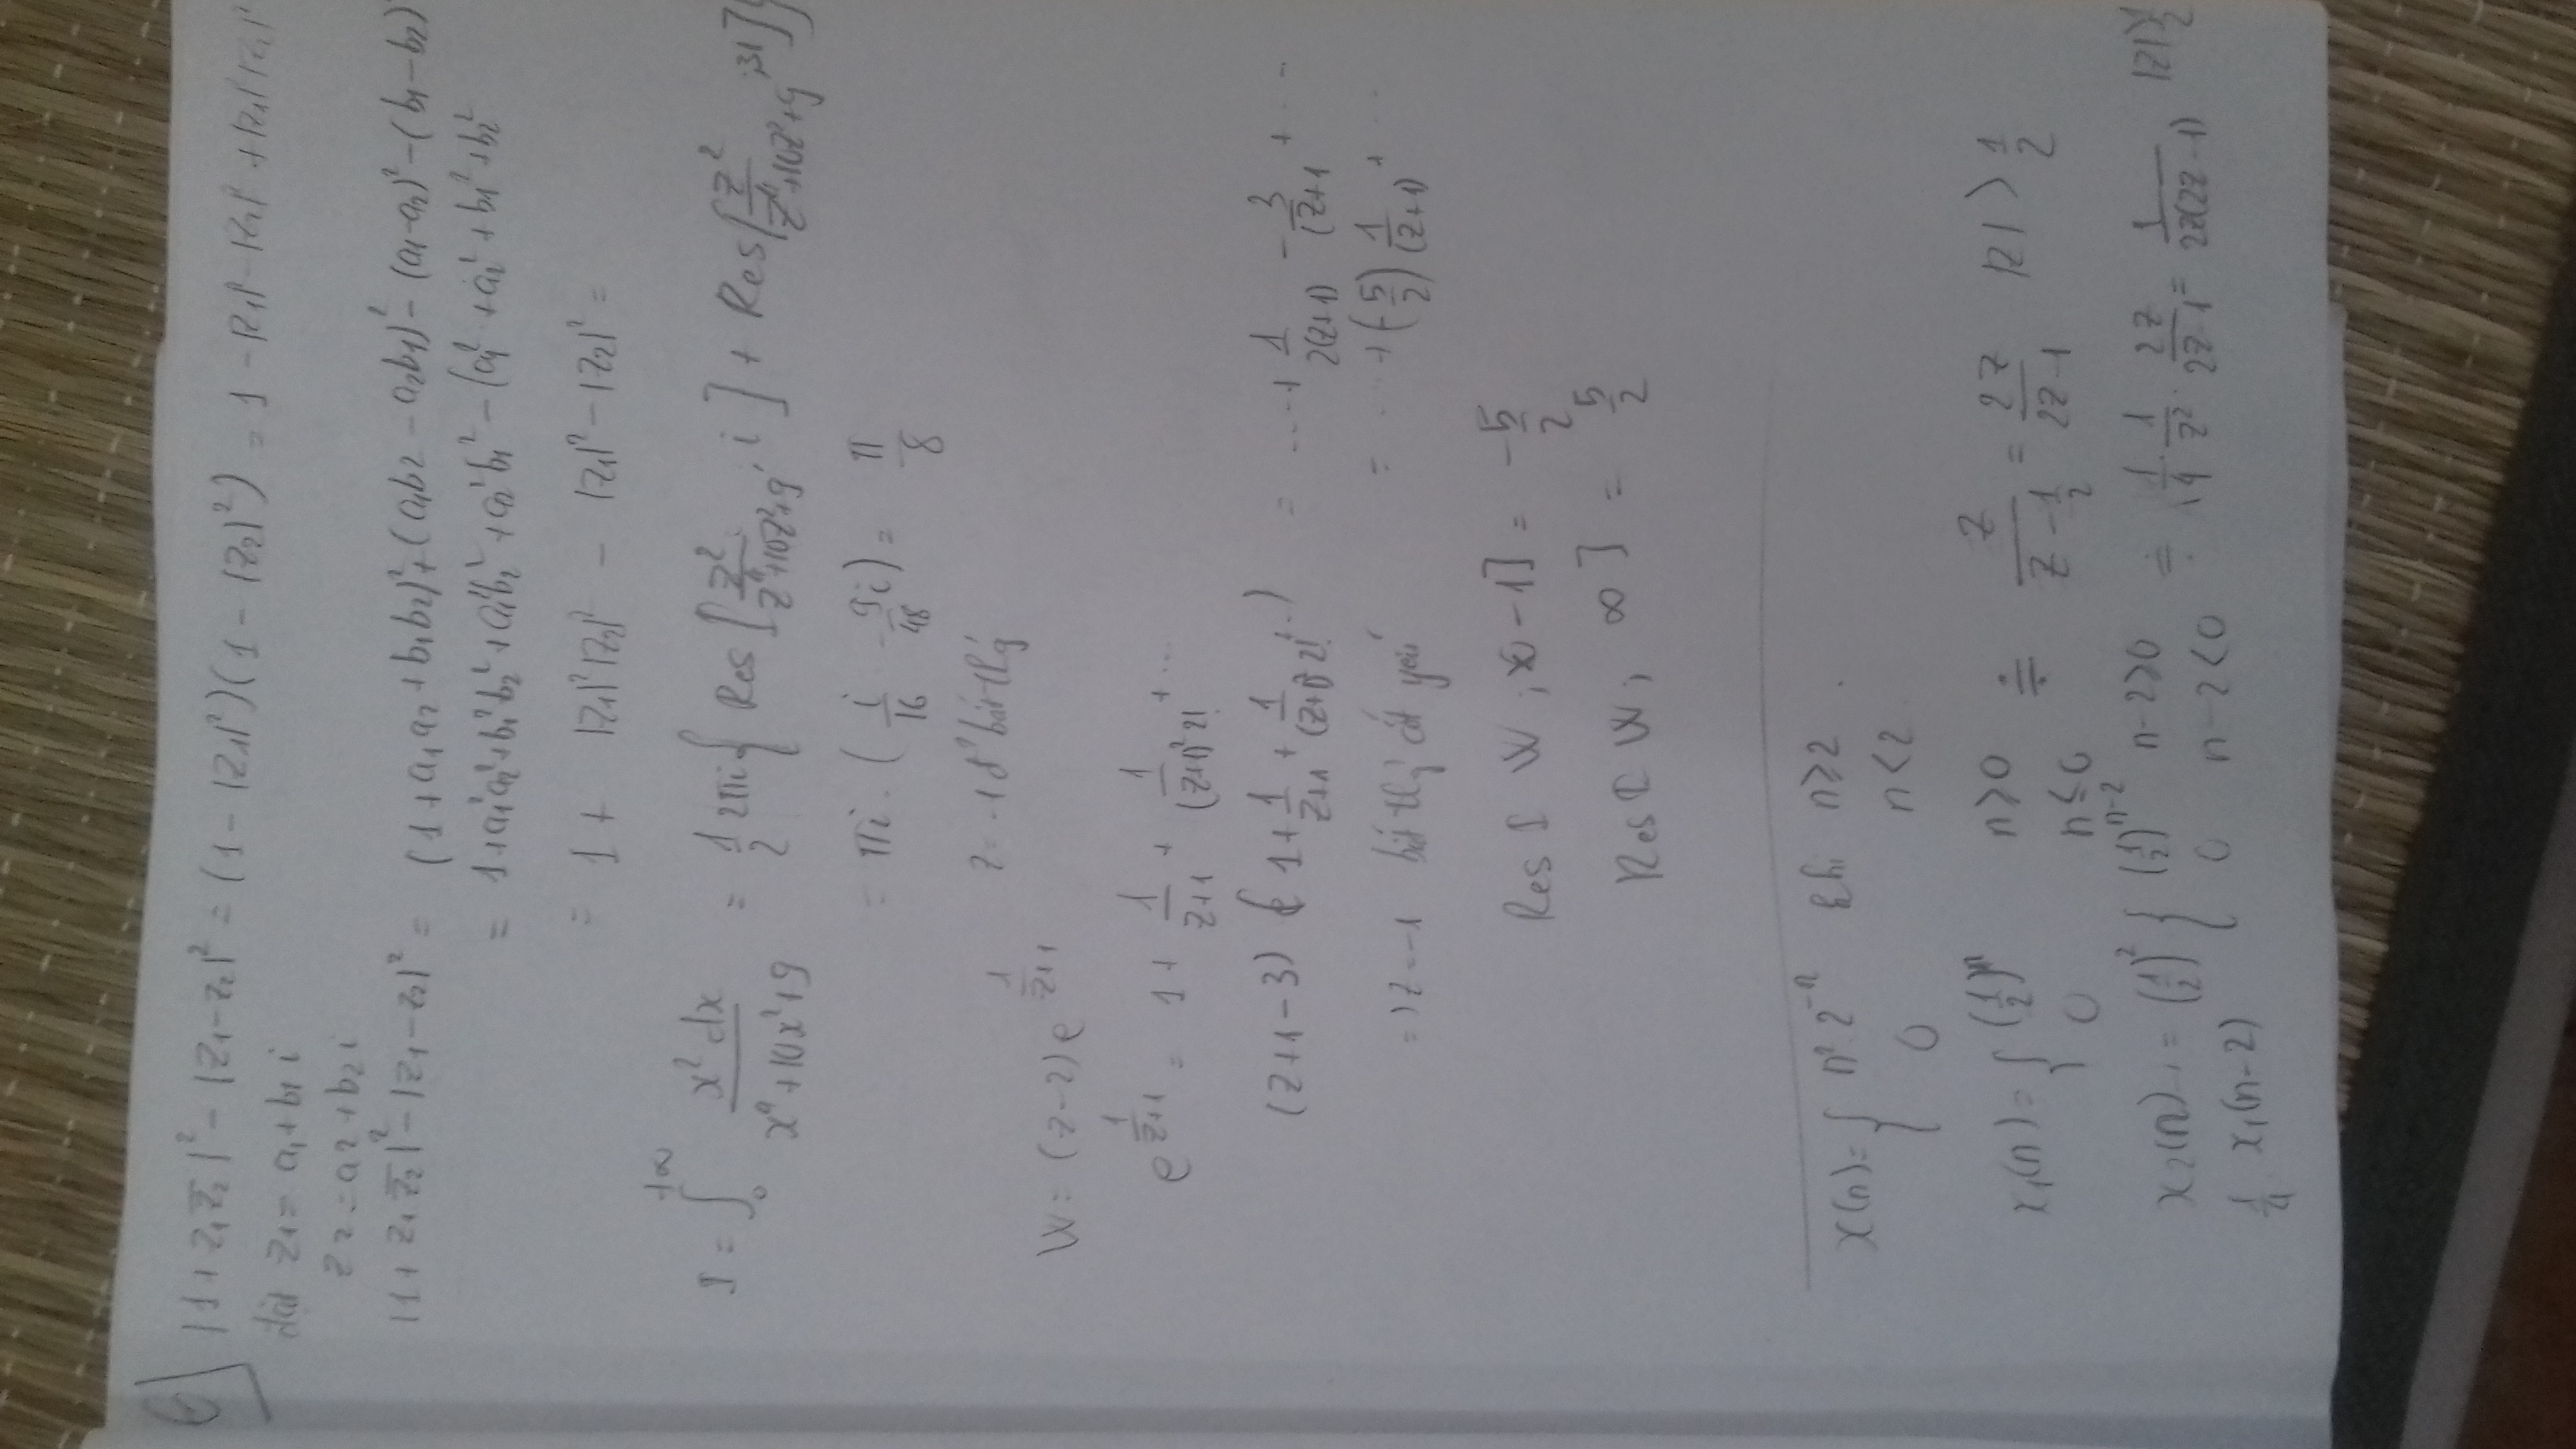 6
|1 + z₁z̄₂|² - |z₁ - z₂|² = (1 - |z₁|²)(1 - |z₂|²) = 1 - |z₁|² - |z₂|² + |z₁|²|z₂|²
đặt z₁ = a₁ + b₁ i
z₂ = a₂ + b₂ i
|1 + z₁z̄₂|² - |z₁ - z₂|² = (1 + a₁a₂ + b₁b₂)² + (a₁b₂ - a₂b₁)² - (a₁ - a₂)² - (b₁ - b₂)
= 1 + a₁²a₂² + b₁²b₂² + a₁²b₂² + a₂²b₁² - (a₁² + a₂² + b₁² + b₂²
= 1 + |z₁|²|z₂|² - |z₁|² - |z₂|² =
I = ∫₀^{+∞} x²dx / (x⁴ + 10x² + 9) = 1/2 2πi { Res[z²/(z⁴+10z²+9); i] + Res[z²/(z⁴+10z²+9); 3i]
= πi . (i/16 - 9i/48) = π/8
W = (z-2) e^{1/(z+1)} z = -1 là bất thg
e^{1/(z+1)} = 1 + 1/(z+1) + 1/((z+1)² 2!) + ...
(z+1-3) ( 1 + 1/(z+1) + 1/((z+1)² 2!) ...) = .... + 1/(2(z+1)) - 3/(z+1) + ...
= ... + (-5/2) 1/(z+1) + ...
=> z = -1 bất thg cốt yếu
Res [ W ; -1] = -5/2
Res [ W ; ∞ ] = 5/2
x(n) = { n² 2^{-n} khi n ≥ 2
0 n < 2
x₁(n) = { (1/2)^n n ≥ 0 ÷ z/(z - 1/2) = 2z/(2z-1) |z| > 1/2
0 n < 0
x₂(n) = (1/2)² { (1/2)^{n-2} n-2 ≥ 0 ÷ 1/4 . 1/z² . 2z/(2z-1) = 1/(2z(2z-1)) |z| > 1/2
0 n-2 < 0
1/4 x₁(n-2)